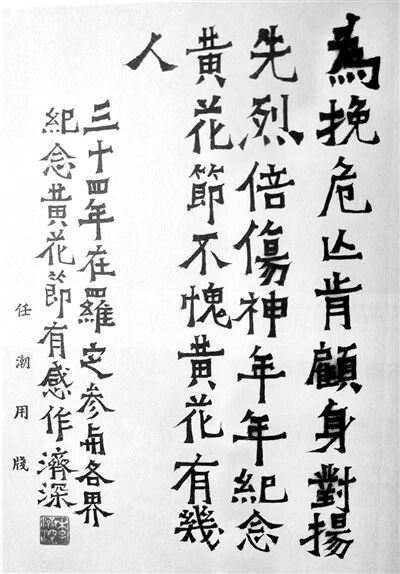 為挽危亾肯顧身對揚
先烈倍傷神年年紀念
黄花節不愧黄花有幾
人
三十四年在羅㝎参与各界
紀念黄花節有感作濟深
任潮用牋